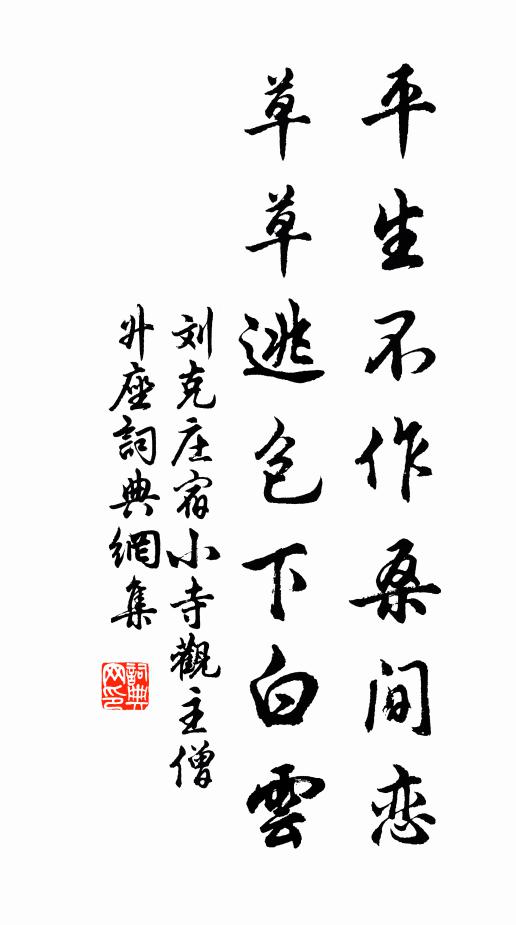 平生不作桑间恋
草草逃包下白雲
刘克庄宿小寺觀主僧
升座詞典網集
詞典网印